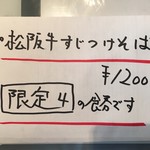 松阪牛すじつけそば
¥1200
限定4の食券です